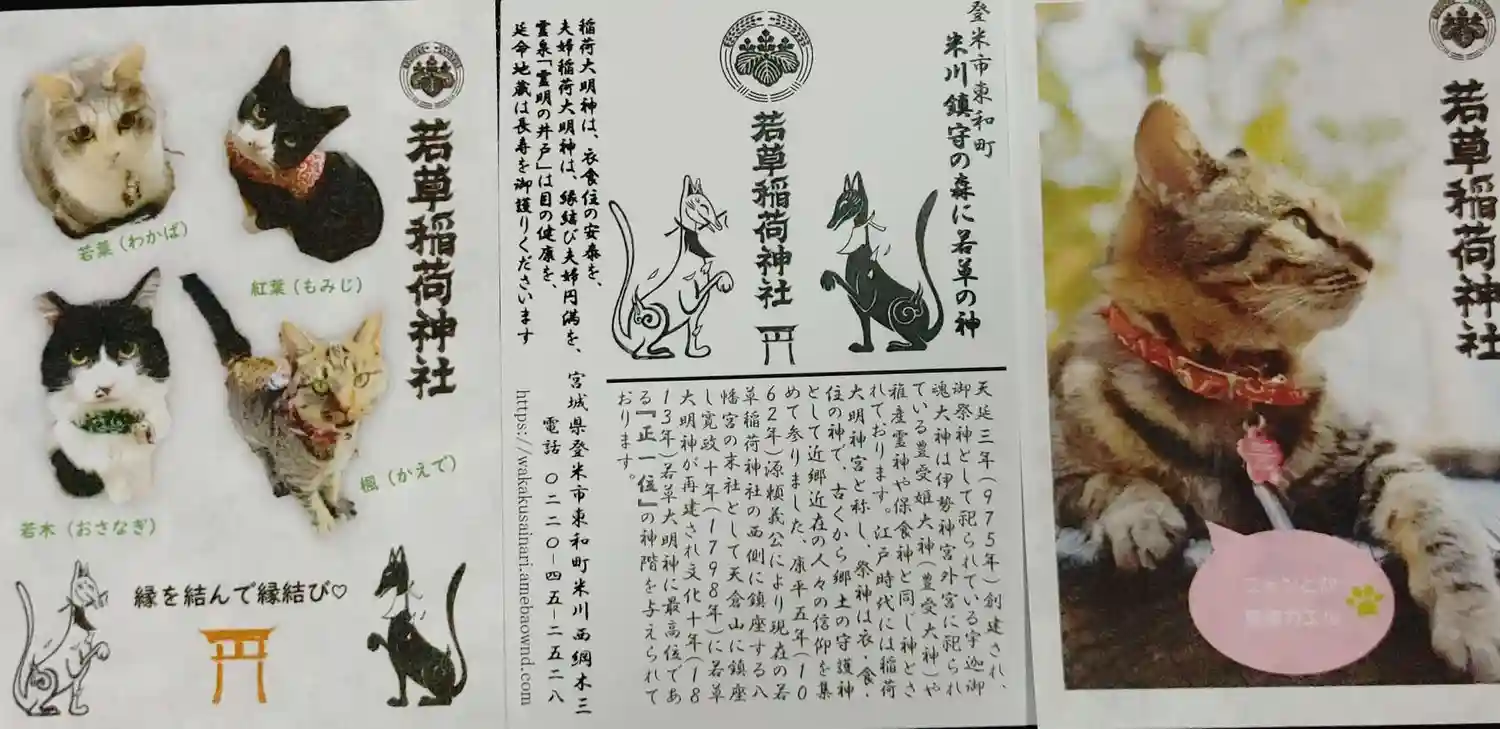 若草稲荷神社
若葉（わかば）
紅葉（もみじ）
若木（おさなぎ）
楓（かえで）
縁を結んで縁結び♡
登米市東和町
米川鎮守の森に若草の神
若草稲荷神社
稲荷大明神は、衣食住の安泰を、
夫婦稲荷大明神は、縁結び夫婦円満を、
霊泉「霊明の井戸」は目の健康を、
延命地蔵は長寿を御護りくださいます
天延三年（９７５年）創建され、
御祭神として祀られている宇迦御
魂大神は伊勢神宮外宮に祀られ
ている豊受姫大神（豊受大神）や
稚産霊神や保食神と同じ神とさ
れております。江戸時代には稲荷
大明神宮と称し、祭神は衣・食・
住の神で、古くから郷土の守護神
として近郷近在の人々の信仰を集
めて参りました。康平五年（１０
６２年）源頼義公により現在の若
草稲荷神社の西側に鎮座する八
幡宮の末社として天倉山に鎮座
し寛政十年（１７９８年）に若草
大明神が再建され文化十年（１８
１３年）若草大明神に最高位であ
る『正一位』の神階を与えられて
おります。
宮城県登米市東和町米川西綱木三
電話　〇二二〇－四五－二五二八
https://wakakusainari.amebaownd.com
若草稲荷神社